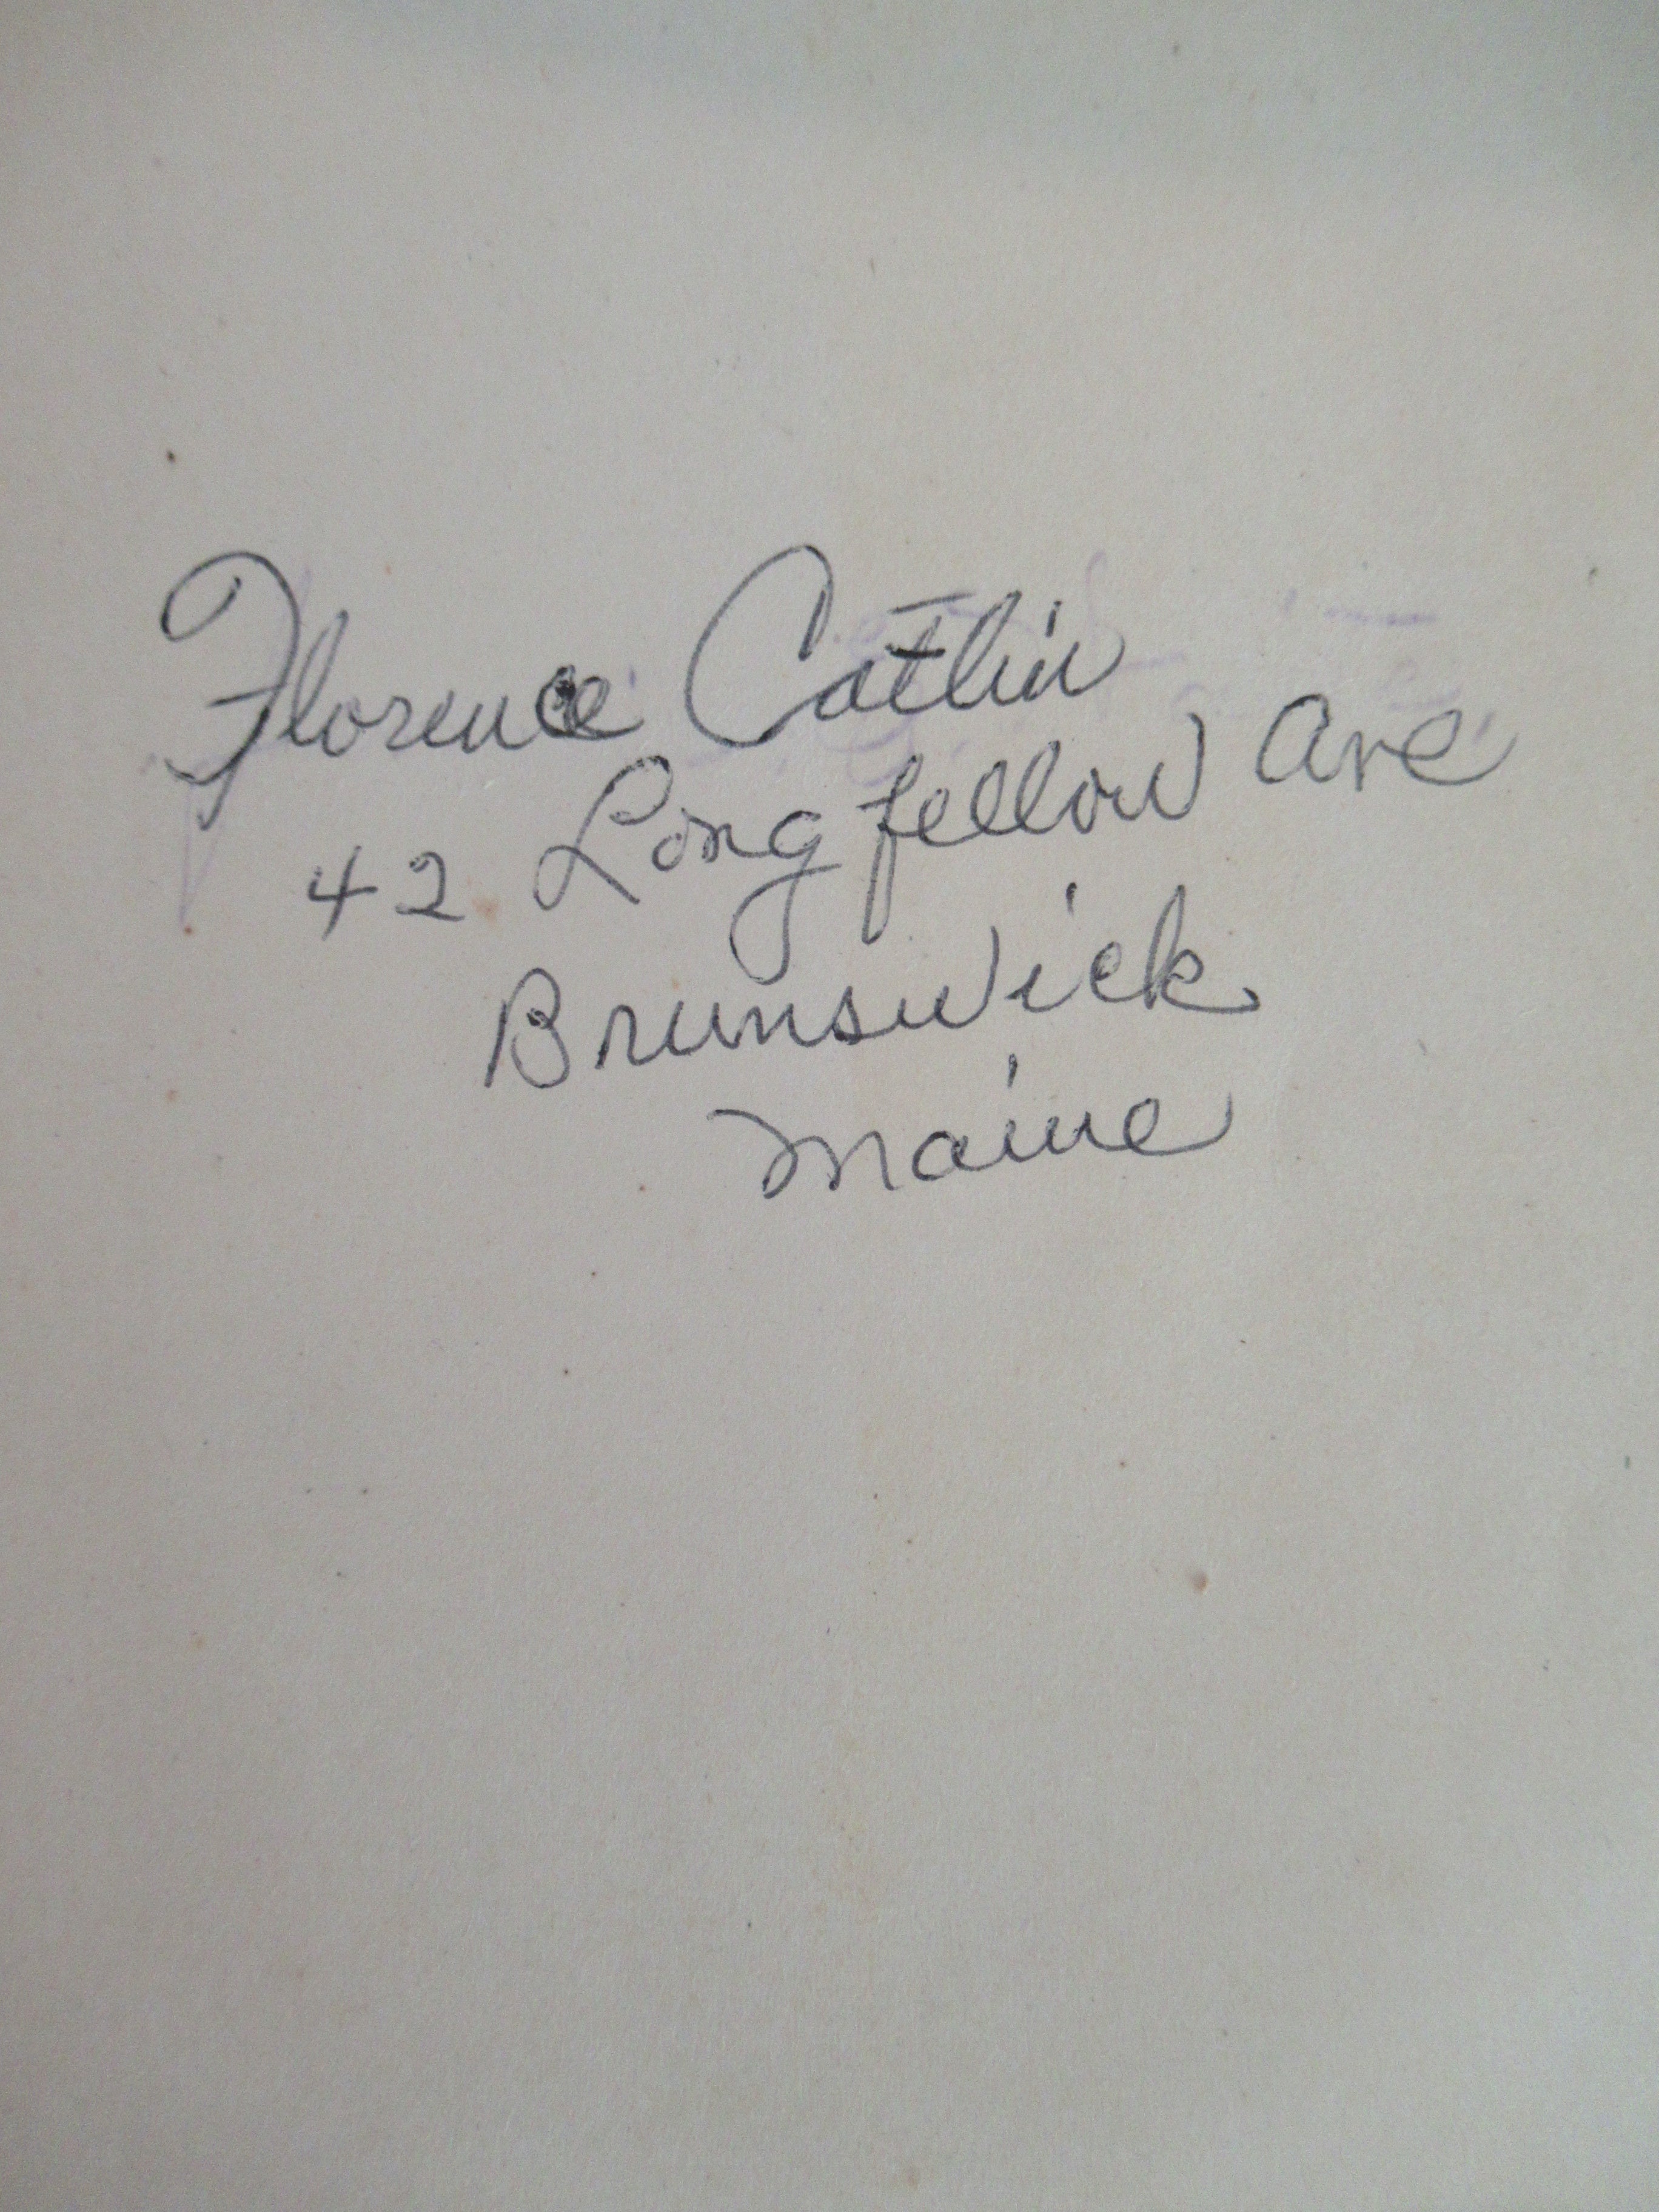 Florence Catlin
42 Longfellow Ave
Brunswick
Maine